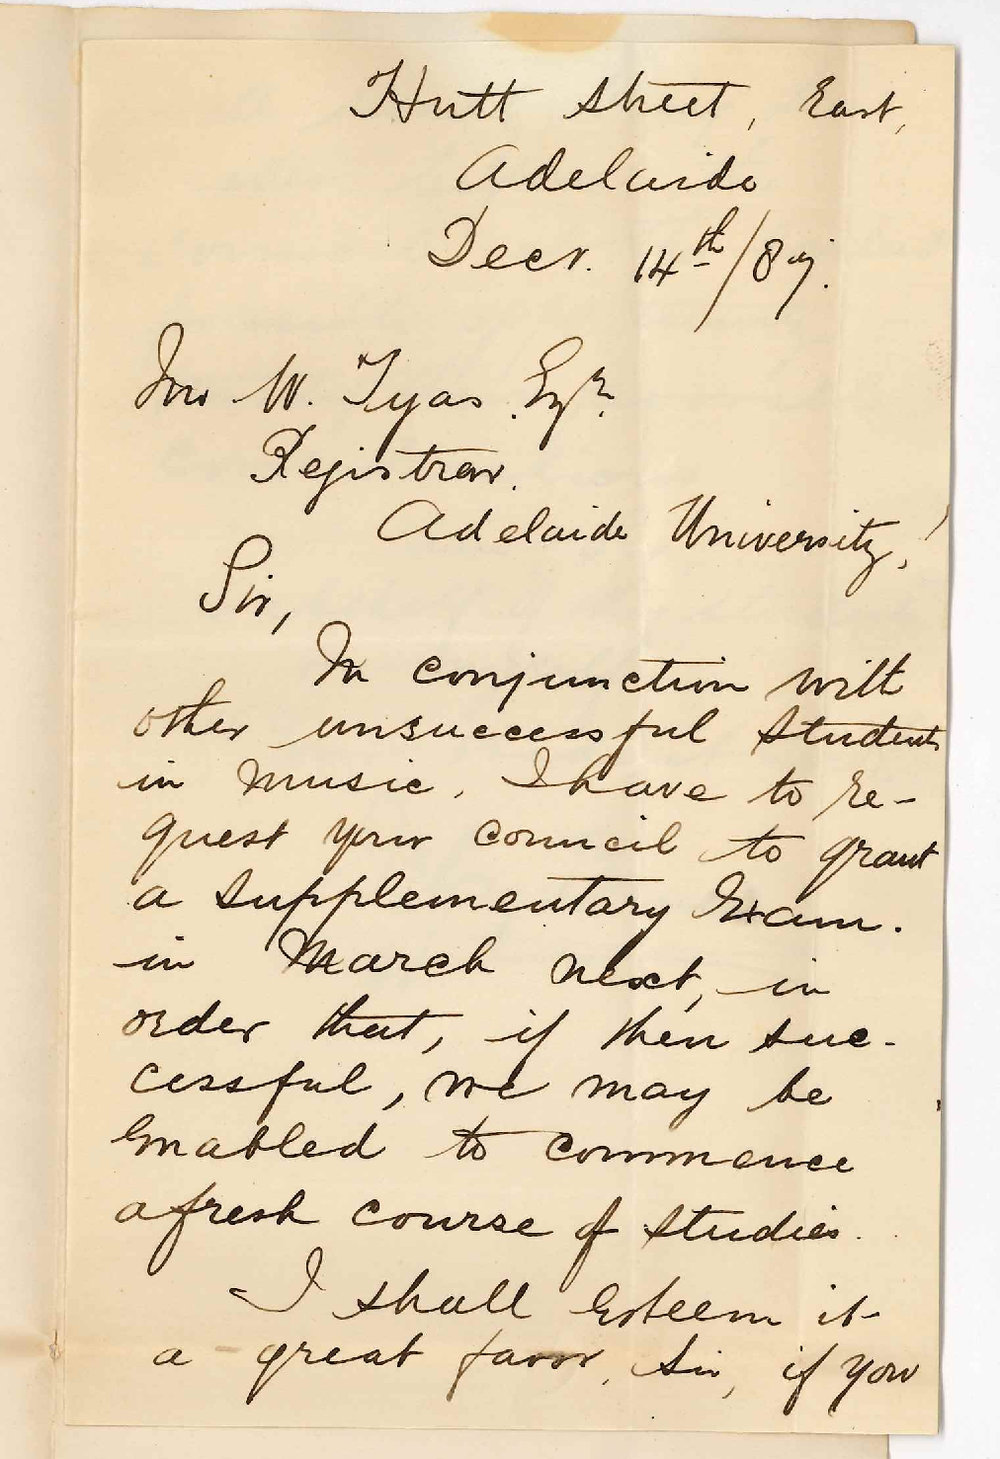 Hutt Street, East,
Adelaide
Decr. 14th/87.
Jno W. Tyas Esqr.
Registrar.
Adelaide University,
Sir,
In conjunction with
other unsuccessful Students
in Music, I have to re-
quest your Council to grant
a Supplementary Exam.
in March next, in
order that, if then suc-
cessful, we may be
Enabled to commence
a fresh course of Studies.
I shall Esteem it
a great favor, Sir, if you